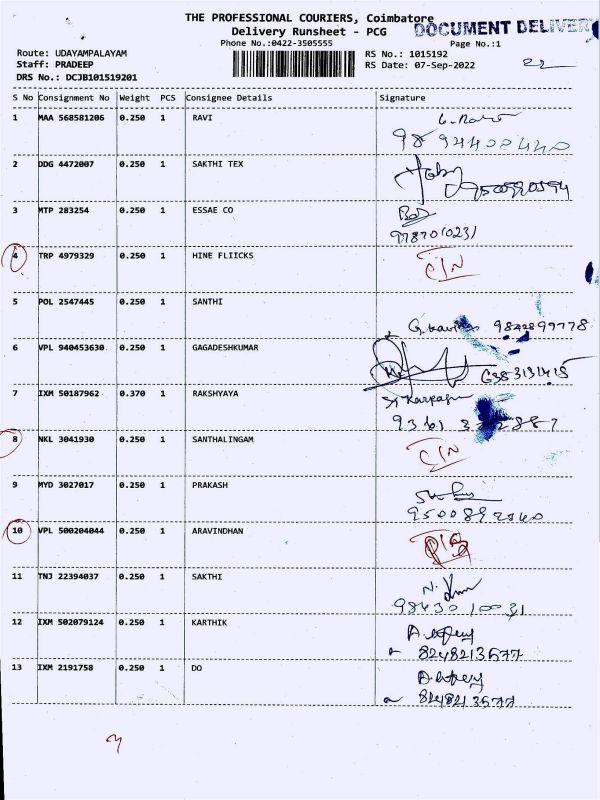 THE PROFESSIONAL COURIERS, Coimbatore
DOCUMENT DELIVER
Delivery Runsheet - PCG
Phone No.:0422-3505555
Page No.:1
Route: UDAYAMPALAYAM
RS No.: 1015192
Staff: PRADEEP
RS Date: 07-Sep-2022
22
DRS No.: DCJB101519201
S No Consignment No Weight PCS Consignee Details Signature
1 MAA 568581206 0.250 1 RAVI
9894400440
2 DDG 4472007 0.250 1 SAKTHI TEX
3 MTP 283254 0.250 1 ESSAE CO
9787010231
4 TRP 4979329 0.250 1 HINE FLIICKS
5 POL 2547445 0.250 1 SANTHI
9842899778
6 VPL 940453630 0.250 1 GAGADESHKUMAR
7 IXM 50187962 0.370 1 RAKSHYAYA
8 NKL 3041930 0.250 1 SANTHALINGAM
9 MYD 3027017 0.250 1 PRAKASH
10 VPL 500204044 0.250 1 ARAVINDHAN
11 TNJ 22394037 0.250 1 SAKTHI
9843010031
12 IXM 502079124 0.250 1 KARTHIK
8248213577
13 IXM 2191758 0.250 1 DO
8248213577
3